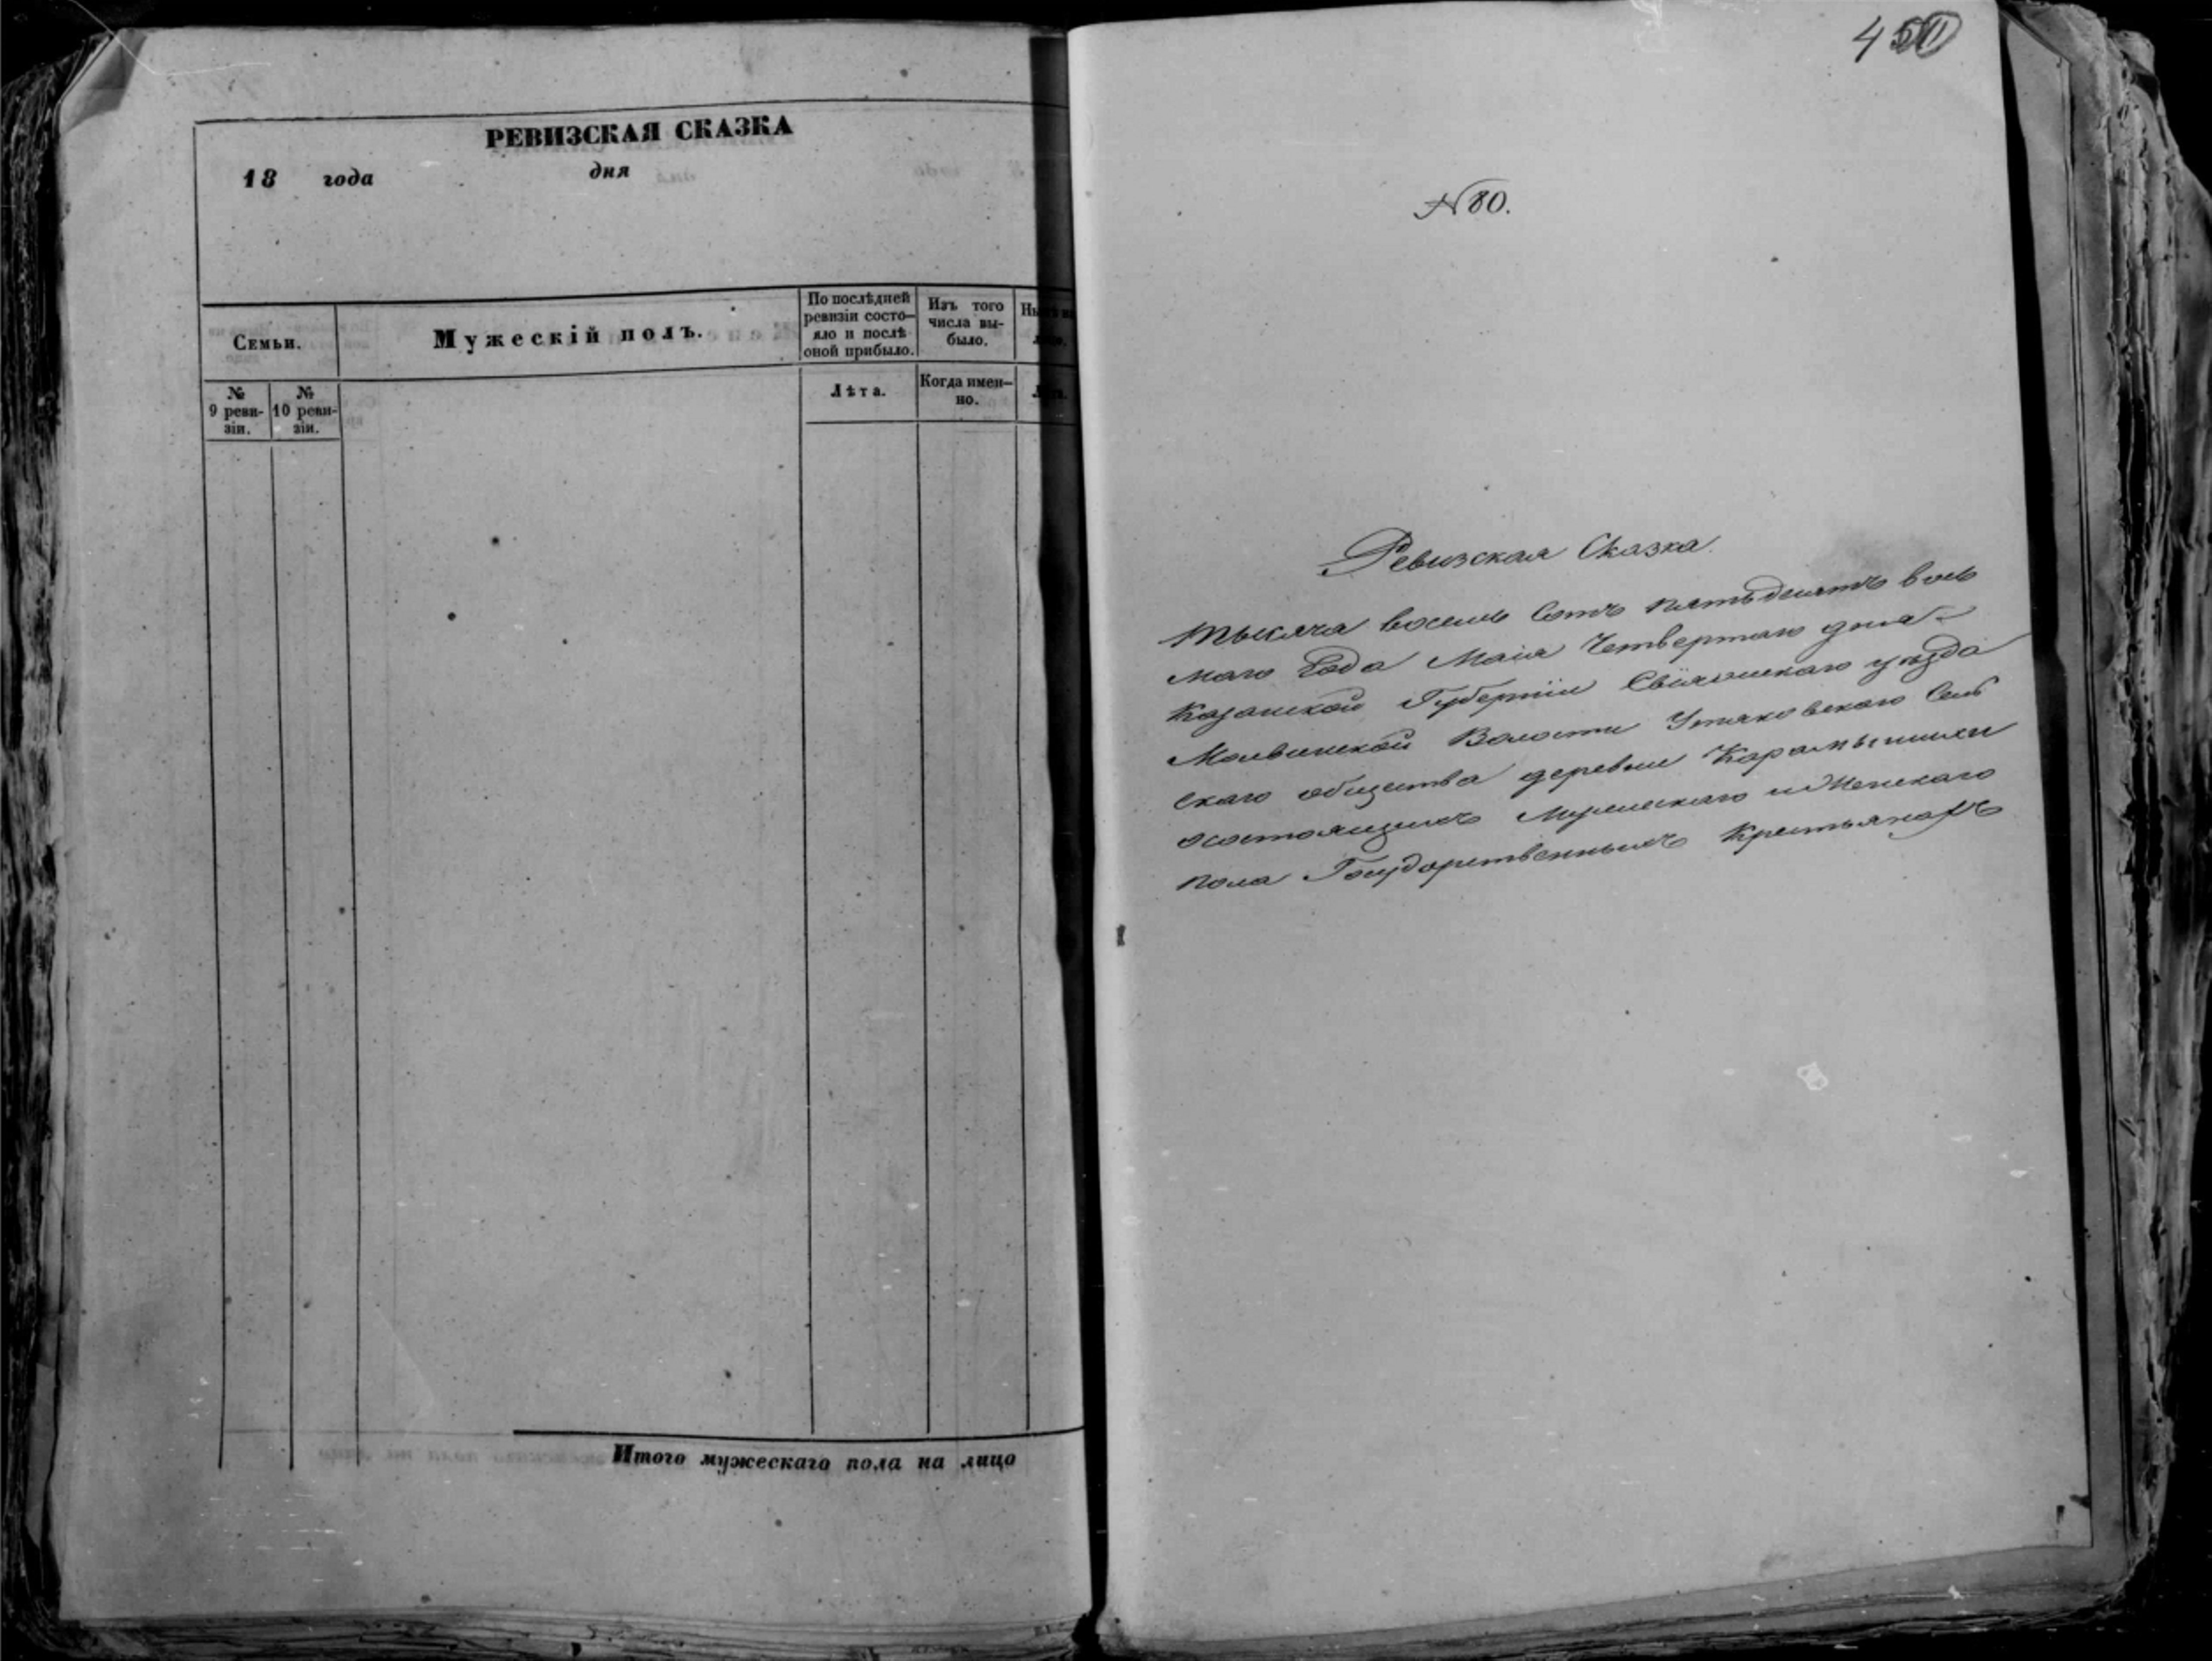 РЕВИЗСКАЯ СКАЗКА
18 года дня
Семьи.
Мужескій полъ.
По послѣдней
ревизіи состо-
яло и послѣ
оной прибыло.
Изъ того
числа вы-
было.
№
9 реви-
зіи.
№
10 реви-
зіи.
Лѣта.
Когда имен-
но.
Итого мужескаго пола на лицо
№ 80.
Ревизская Сказка.
Тысяча восемь сотъ пятьдесятъ вось
маго Года Маія Четвертаго дня
Казанской Губерніи Свіяжскаго уѣзда
Молвинской Волости Утяковскаго Сель
скаго общества деревни Карамышихи
осостоящихъ Мужескаго и Женскаго
пола Государственныхъ Крестьянахъ